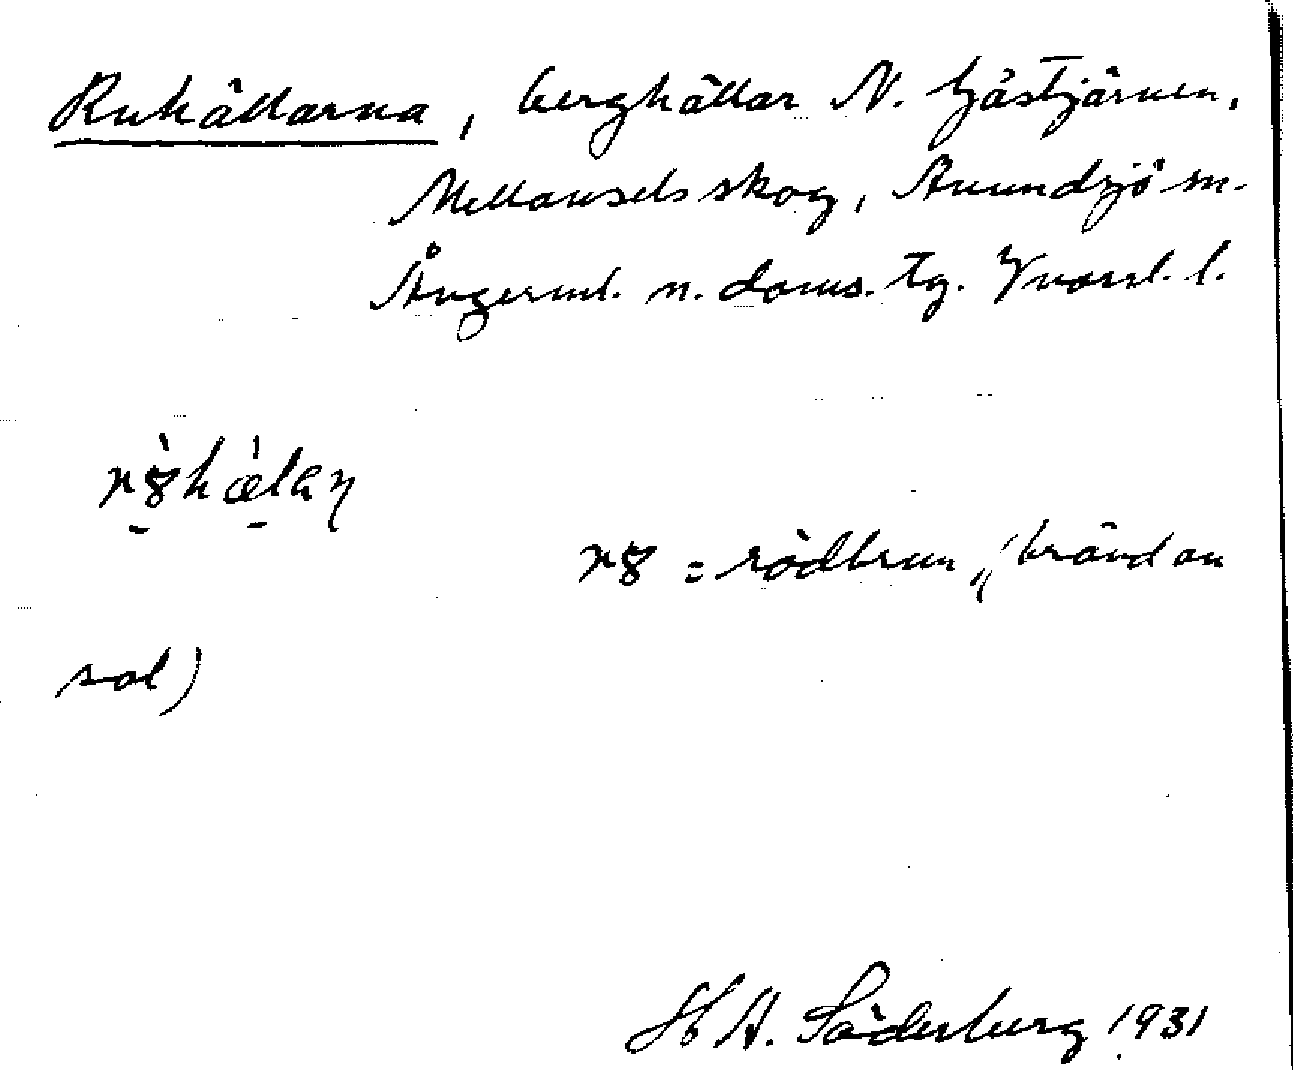 Ruhällarna, berghällar N. Gåstjärnen,
Mellansels skog, Anundsjö sn.
Ångerml. n. doms. tg. Västernorrl. l.
rö̀hæ̀lan
= rödbrun („bränd av
sol)
H A. Söderberg 1931